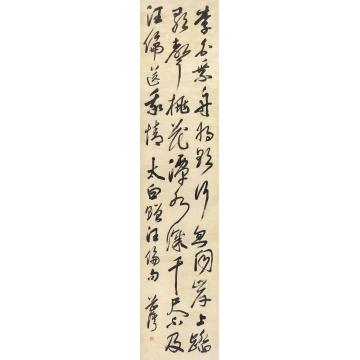 李白乘舟将欲行忽闻岸上踏
歌聲桃花潭水深千尺不及
汪倫送我情 太白贈汪倫句